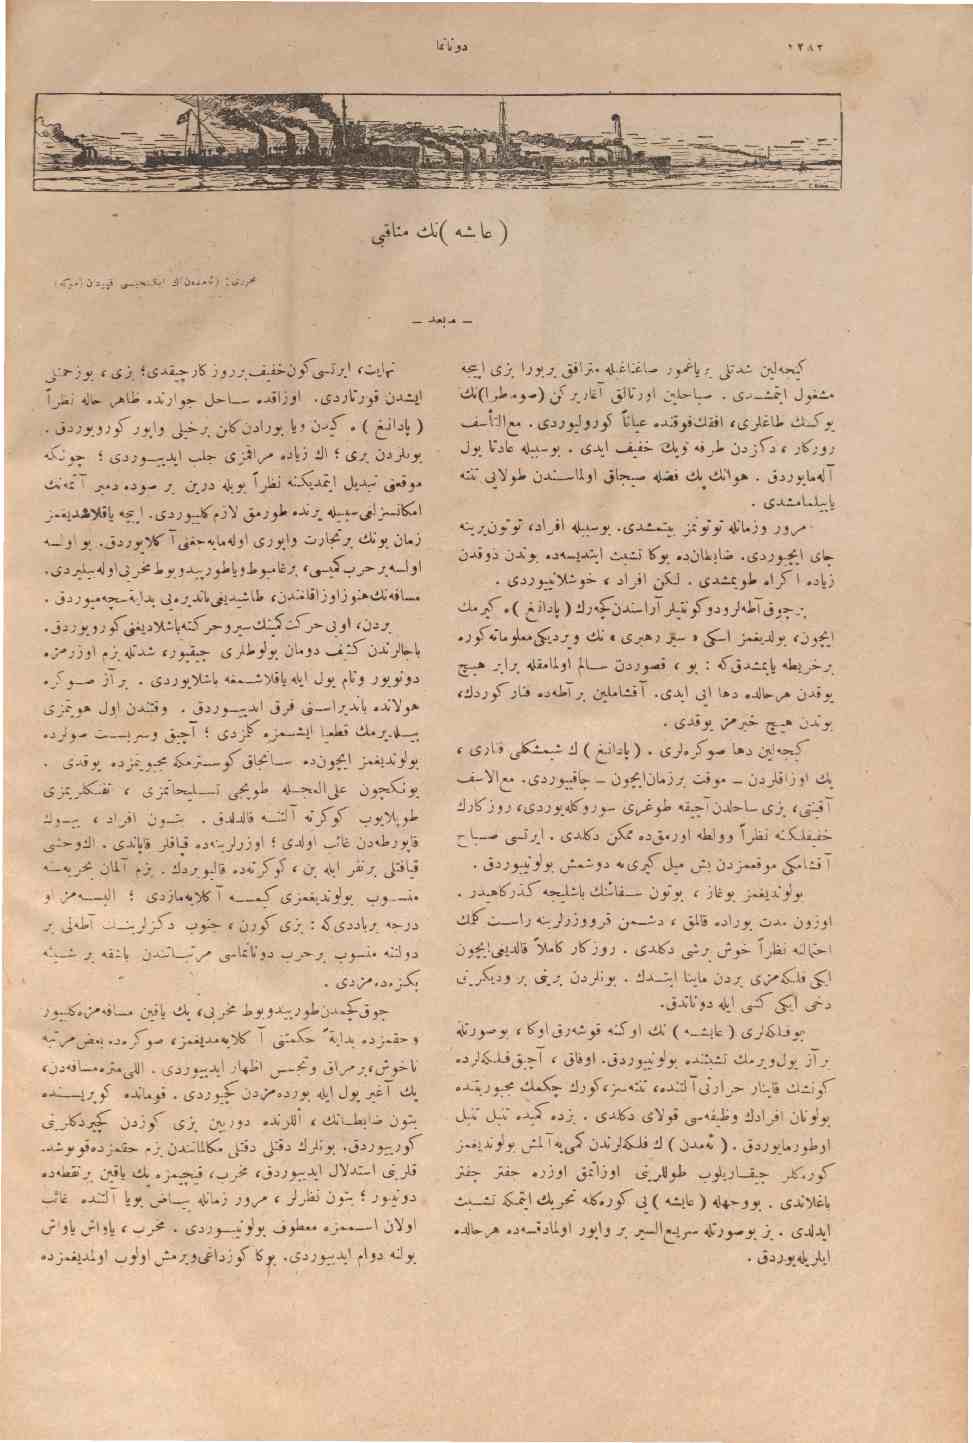 ١٢٨٢
دونانما
( عائشه )نك مناقبى
محررى: (ئه‌مدەن)ك ايكنجيسى قپودان (موكه)
— مابعد —
كيجه‌لين شدتلى بر ياغمور صاغناغيله مترافق بر بورا بزى اييجه
مشغول ايتمشدى . صباحلين اورتالق آغاريركن (صوماطرا)نك
يوكسك طاغلرى، افقك فوقنده عياناً كورولويوردى . مع التأسف
روزكار ، دكزدن طرفه و پك خفيف ايدى . بوسببله عادتا يول
آله‌مايوردق . هوانك پك فضله صيجاق اولماسندن طولايى تنته
ياپيلمامشدى .
مرور وزمانله توتونمز بيتمشدى. بوسببله افراد، توتون يرينه
چاى ايچيوردى. ضابطان‌ده بوكا تشبث ايتديسه‌ده بوندن ذوقدن
زياده اكراه طويمشدى . لكن افراد ، خوشلانييوردى .
برچوق آطه‌لر و دوكونتيلر آراسندن كچه‌رك ( پادانغ )ه كيرمك
ايچون، بولديغمز اسكى « سفر رهبرى » نك ويرديكى معلوماته كوره
بر خريطه ياپمشدق‌كه : بو ، قصوردن سالم اولمامقله برابر هيچ
يوقدن هر حالده دها ايى ايدى. آقشاملين بر آطه‌ده فنار كوردك،
بوندن هيچ خبرمز يوقدى .
كيجه‌لين دها صوكره‌لرى . ( پادانغ ) ك شيمشكلى فنارى ،
پك اوزاقلردن — موقت بر زمان ايچون — چاقييوردى. مع الاسف
آقينتى، بزى ساحلدن آچيغه طوغرى سوروكله‌يوردى، روزكارك
خفيفلكنه نظراً وولطه اورمق‌ده ممكن دكلدى . ايرتسى صباح
آقشامكى موقعمزدن بش ميل كيرى‌يه دوشمش بولونييوردق .
بولونديغمز بوغاز ، بوتون سفائنك باشليجه كذركاهيدر .
اوزون مدت بوراده قالمق ، دشمن قرووزرلرينه راست كلمك
احتمالنه نظراً خوش برشى دكلدى . روزكار كاملاً قالديغى ايچون
ايكى فلكه‌مزى بردن ماينا ايتدك . بونلردن برينى بر و ديكرينى
دخى ايكى كشى ايله دوناتدق.
بو فلكه‌لرى ( عايشه ) نك اوكنه قوشه‌رق اوكا ، بوصورتله
بر آز يول ويرمك تشبثنده بولونييوردق. اوفاق ، آچيق فلكه‌لرده
كونشك قاينار حرارتى آلتنده، تنته‌سز، كورك چكمك مجبوريتنده
بولونان افرادك وظيفه‌سى قولاى دكلدى . بزده كميده تنبل تنبل
اوطورمايوردق . ( ئه‌مدن ) ك فلكه‌لرندن كمى‌يه آلمش بولونديغمز
كوره‌كلر چيقاريلوب طوللرينى اوزاتمق اوزره جفتر جفتر
باغلاندى . بووجهله ( عايشه ) يى كوره‌كله تحريك ايتمكه تشبث
ايدلدى . بز بوصورتله سريع السير بر واپور اولمادقسه‌ده هر حالده
ايلريله‌يوردق .
نهايت، ايرتسى كون خفيف بر روزكار چيقدى؛ بزى ، بو زحمتلى
ايشدن قورتاردى. اوزاقده ساحل جوارنده ظاهر حاله نظراً
( پادانغ ) ه كيدن و يا بورادن كلن برخيلى واپور كورويوردق .
بونلردن برى ؛ اك زياده مراقمزى جلب ايدييوردى ؛ چونكه
موقعنى تبديل ايتمديكنه نظراً بويله درين بر صوده دمير آتمه‌نك
امكانسزلغى سببيله يرنده طورمق لازم كلييوردى. اييجه ياقلاشديغمز
زمان بونك بر تجارت واپورى اوله‌مايه‌جغنى آكلايوردق. بو اولسه
اولسه بر حرب كميسى، برغامبوط و يا طورپيدوبوط مخربى اوله‌بيليردى.
مسافه‌نك هنوز اوزاقلغندن، طاشيديغى بانديره‌يى بدايةً سچه‌ميوردق .
بردن، او يى حركت كمينك سير و حركته باشلاديغنى كورويوردق.
باجالرندن كثيف دومان بولوطلرى چيقيور، شدتله بزم اوزرمزه
دونويور و تام يول ايله ياقلاشمغه باشلايوردى . بر آز صوكره
هولانده بانديراسنى فرق ايدييوردق . وقتندن اول هويتمزى
بيلديرمك قطعيا ايشمزه كلمزدى ؛ آچيق و سربست صولرده
بولونديغمز ايچون‌ده سانجاق كوسترمكه مجبوبيتمزده يوقدى .
بونكچون على العجله طوپجى تسليحاتمزى ، تفنكلريمزى
طوپلايوب كوكرته آلتنه قالدردق . بتون افراد ، بيوك
قاپورطه‌دن غائب اولدى ؛ اوزرلرينه‌ده قپاقلر قاپاندى . اك وحشى
قيافتلى برنفر ايله بن ، كوكرته‌ده قالييوردك. بزم آلمان بحريه‌سنه
منسوب بولونديغمزى كيمسه آكلايه‌مازدى ؛ البسه‌مز او
درجه برباددى‌كه : بزى كورن ، جنوب دكزلرينك آطه‌لى بر
دولتنه منسوب بر حرب دونانماسى مرتباتندن باشقه بر شيئه
بكزه‌ده‌مزدى .
چوق كچمدن طورپيدوبوط مخربى ، پك ياقين مسافه‌مزه كلييور
و حقمزده بدايةً حكمتنى آكلايه‌مديغمز ، صوكره‌ده بعض مرتبه
ناخوش، بر مراق و تجسس اظهار ايدييوردى . اللى متره مسافه‌دن،
پك آغير يول ايله بورده‌مزدن كچيوردى. قومانده كوپريسنده
بتون ضابطانك ، اللرنده دوربين بزى كوزدن كچيردكلرينى
كورييوردق. بونلرك دقتلى دقتلى مكالماتندن بزم حقمزده قونوشد.
قلرينى استدلال ايدييوردق، مخرب، قيچيمزه پك ياقين بر نقطه‌ده
دونيور ؛ بتون نظرلر ، مرور زمانله بياض بويا آلتنده غائب
اولان اسممزه معطوف بولونيوردى . مخرب ، ياواش ياواش
يولنه دوام ايدييوردى. بوكا كوزداغى ويرمش اولوب اولمديغمزده